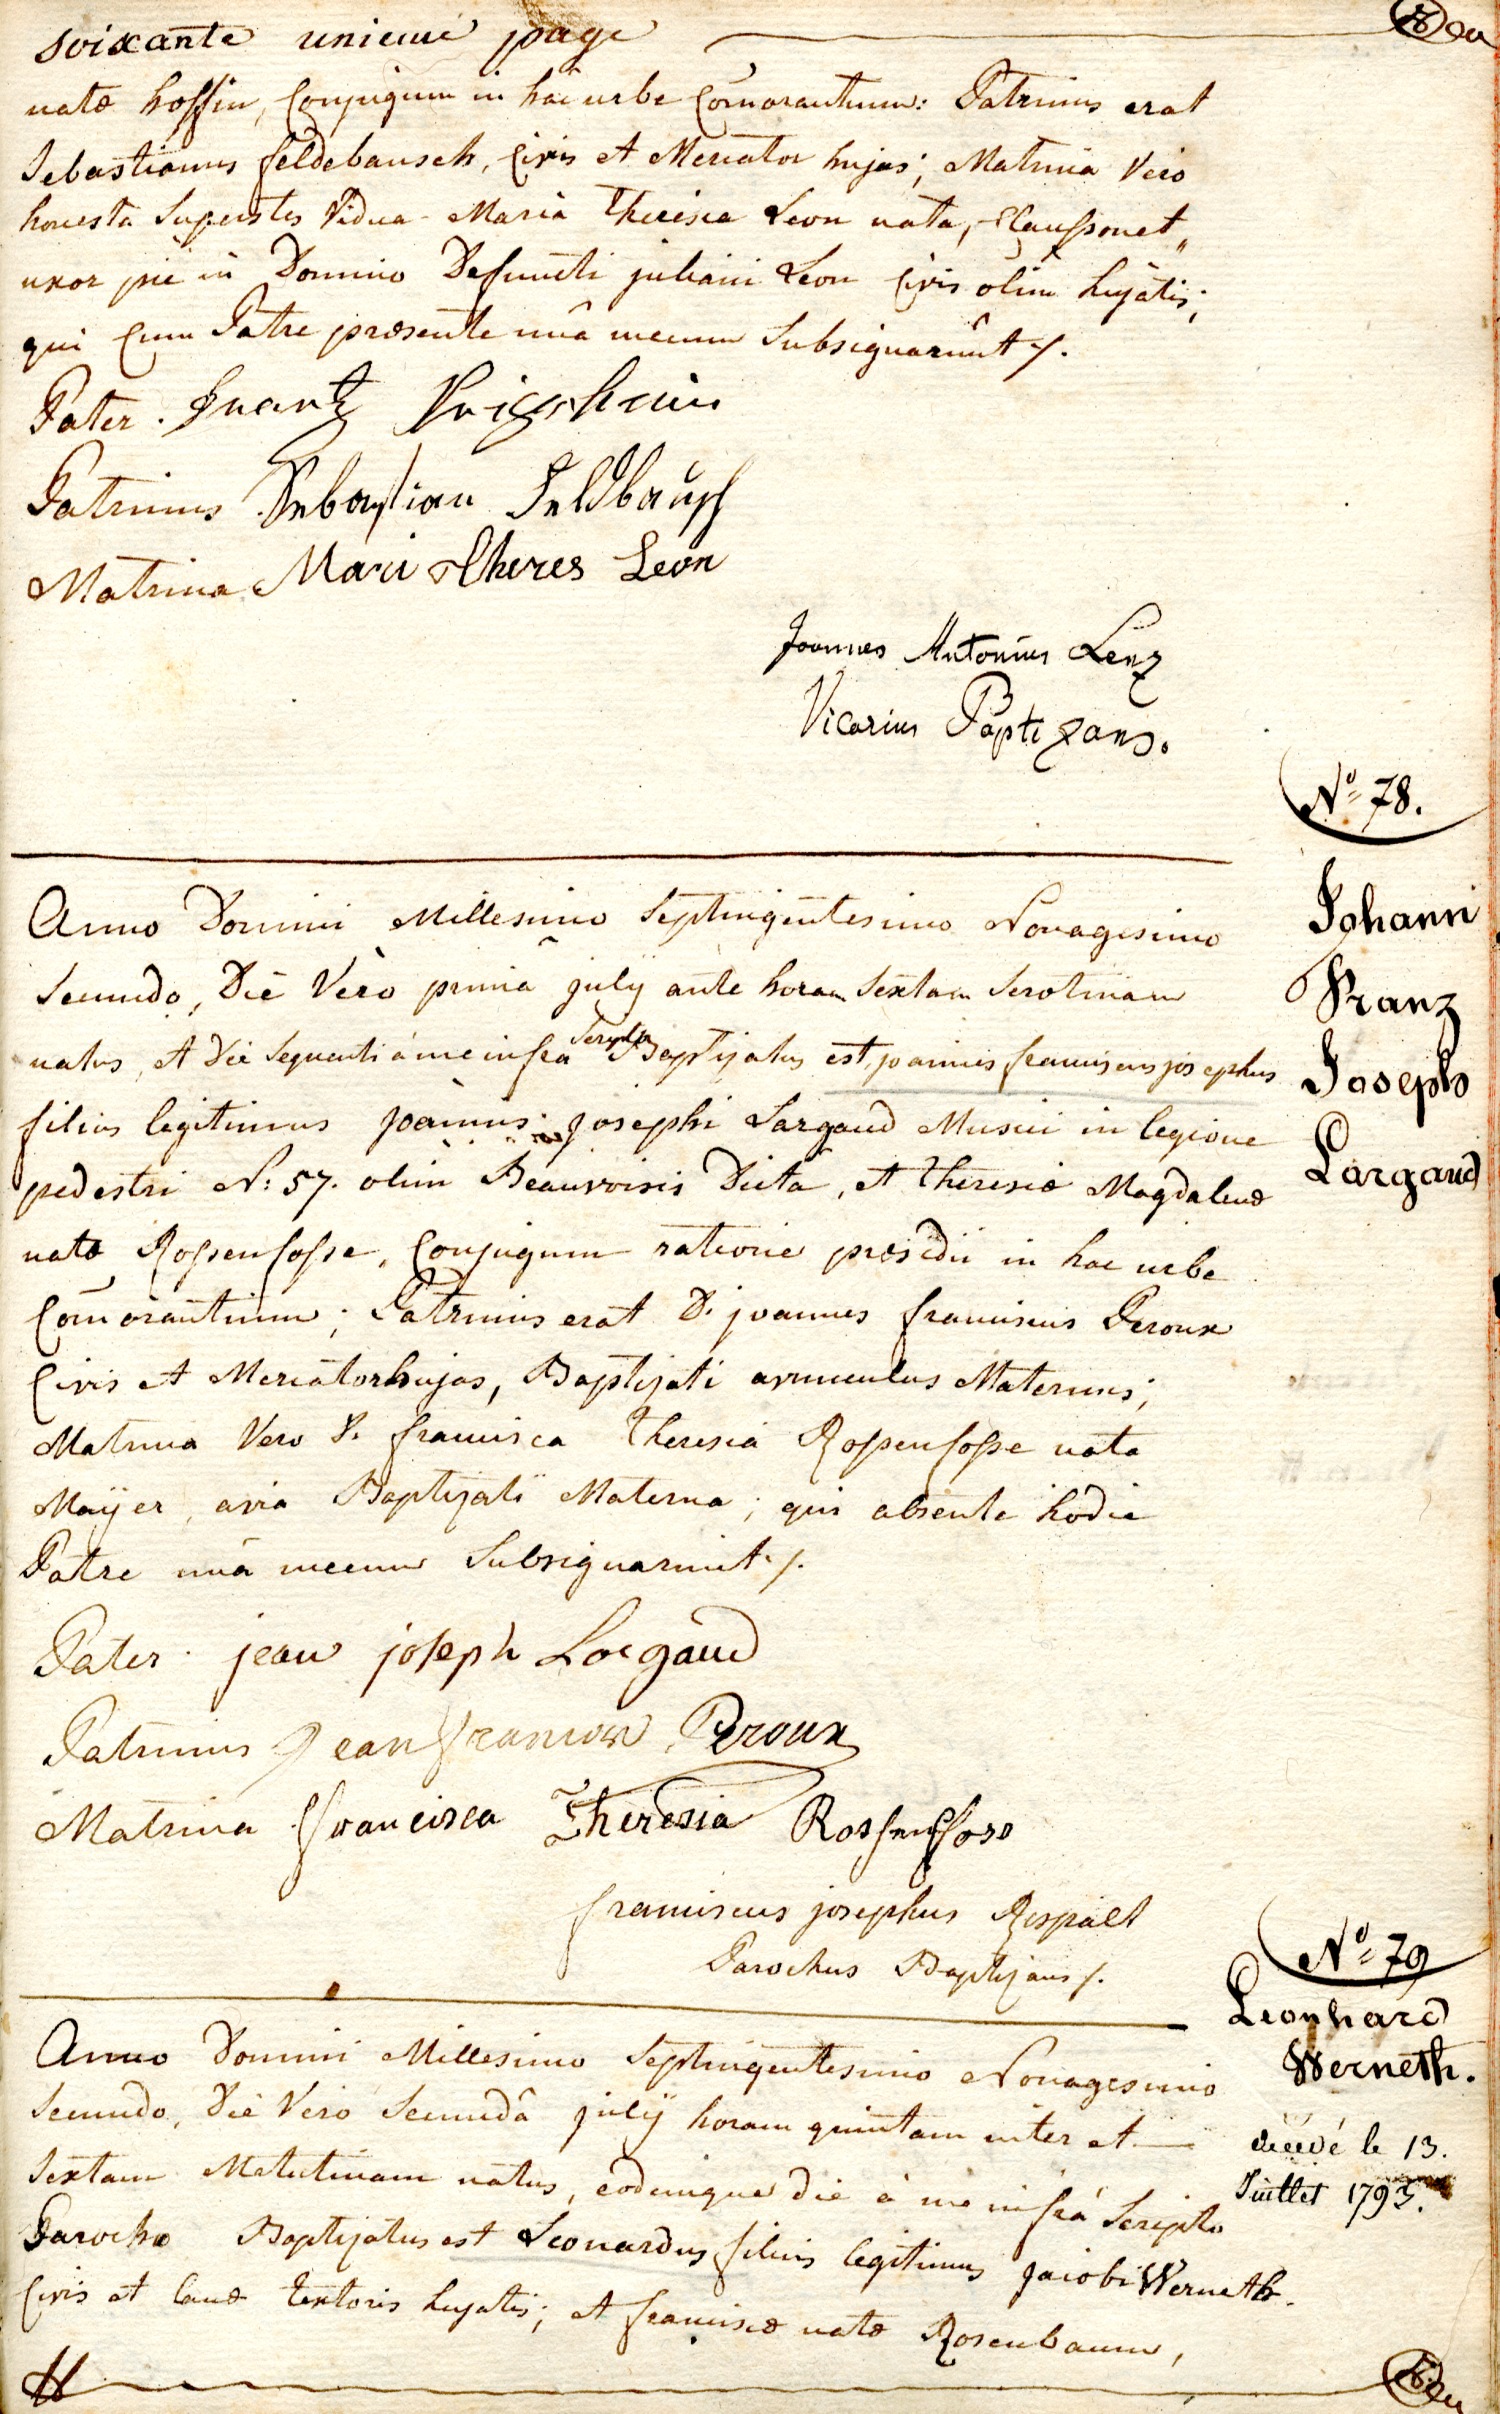 soixante unieme page
natæ hossin, Conjugum in hâc urbe Com̄orantium: Patrinus erat
Sebastianus feldebausch, Civis et Mercator hujas; Matrina Vero
honesta Superstes Vidua Maria Theresia Leon nata,
uxor piè in Domino Defuncti juliani Leon Civis olim hujatis;
qui Cum Patre præsente unâ mecum Subsignarûnt ·/.
Pater. Frantz
Patrinus Sebastian Feldbausch
Matrina Mari Theres Leon
Joannes Antonius Lenz
Vicarius Paptizans.
Nº 78.
Johann
Franz
Joseph
Largaud
Anno Domini Millesimo Septingentesimo Nonagesimo
Secundo, Die Vero primâ july ante horam Sextam Serotinam
natus, et Die Sequenti à me infra Scripto Baptizatus est, joannes franciscus josephus
filius legitimus joannis josephi Largaud Musici in legione
pedestri N: 57. olim Beauvoisis Dictâ, et Theresiæ Magdalenæ
natæ Rossensosse, Conjugum ratione præsidii in hac urbe
Com̄orantium; Patrinus erat D. joannes franciscus Peroux
Civis et Mercator hujas, Baptizati avunculus Maternus;
Matrina Vero D. francisca Theresia Rossensosse nata
Maÿer, avia Baptizati Materna; qui absente hodie
Patre unâ mecum Subsignarunt ·/.
Pater. jean joseph Largaud
Patrinus Jean francois Peroux
Matrina francisca Theresia Rossensoss
franciscus josephus Rispalt
Parochus Baptizans /.
Nº 79
Leonhard
Werneth.
décédé le 13.
Juillet 1793.
Anno Domini Millesimo Septingentesimo Nonagesimo
Secundo, Die Vero Secundâ julÿ horam quintam inter et
Sextam Matutinam natus, eodemque die à me infrá Scripto
Parocho Baptizatus est Leonardus filius legitimus jacobi Werneth.
Civis et lanæ textoris hujatis; et franciscæ natæ Rosenbaum,